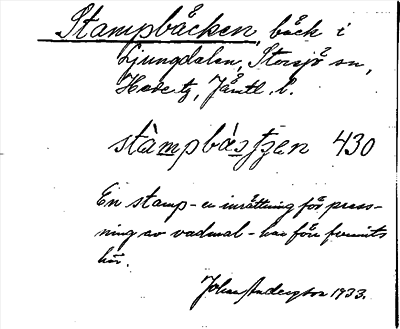 Stampbäcken, bäck i
Ljungdalen, Storsjö sn,
Hede tg, Jämtl. l.
stàmpbá̀stjen 430
En stamp - en inrättning för press-
ning av vadmal - har förr funnits
här.
Johan Andersson 1933.